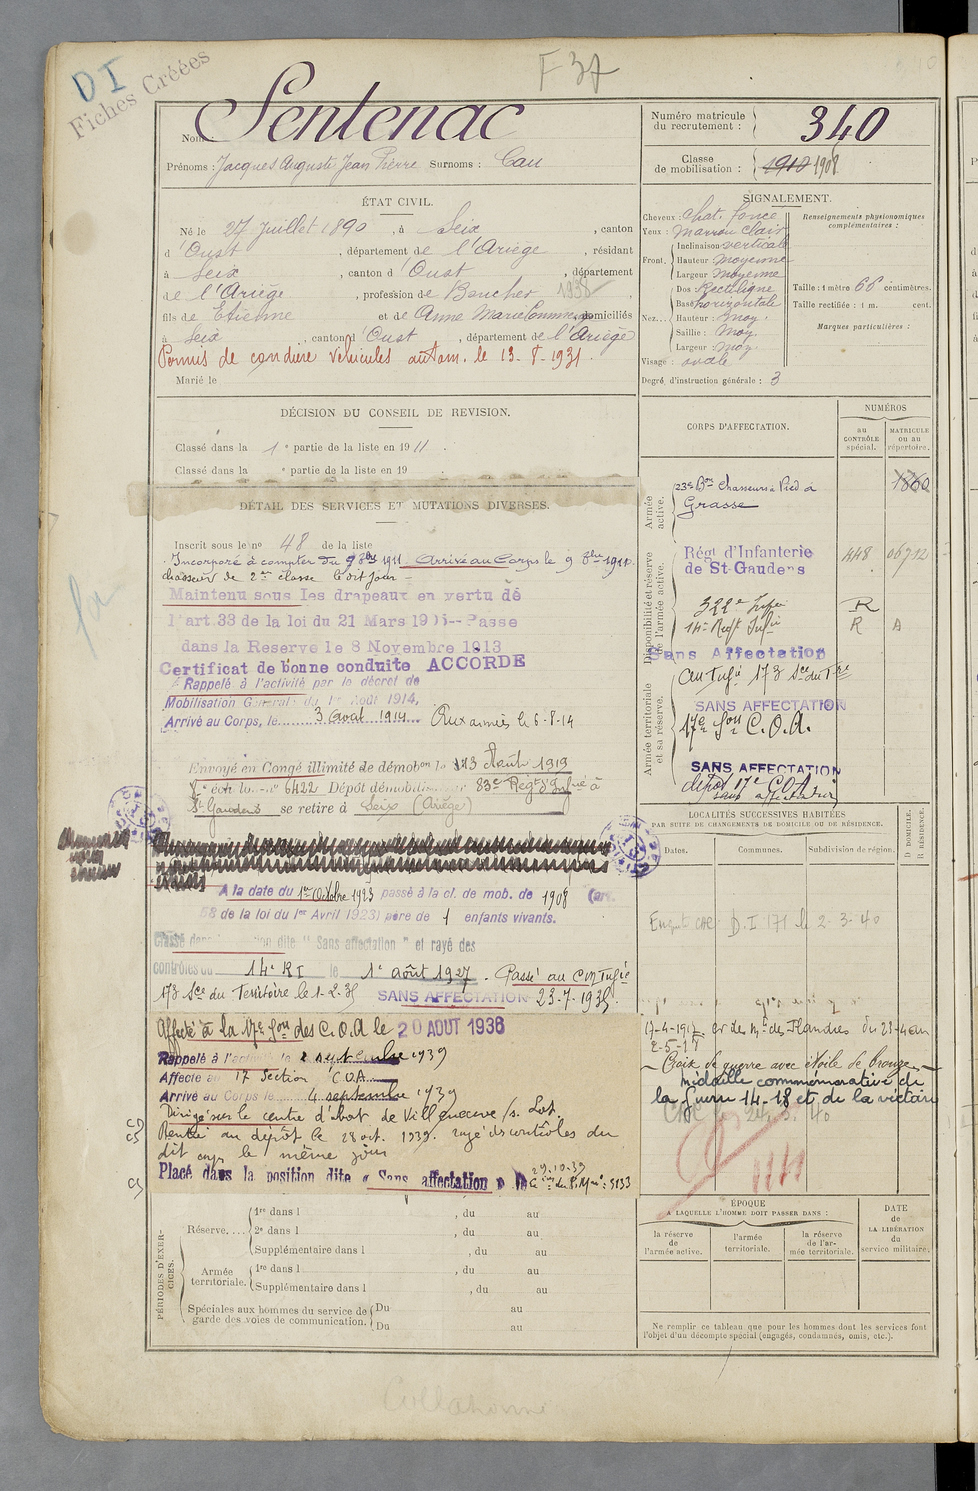 DI
Fiches Créées
F 37
Nom : Sentenac
Prénoms : Jacques Auguste Jean Pierre Surnoms : Cau
Numéro matricule du recrutement : 340
Classe de mobilisation : 1910 1908
ÉTAT CIVIL.
Né le 27 Juillet 1890, à Seix, canton
d'Oust, département de l'Ariège, résidant
à Seix, canton d'Oust, département
de l'Ariège, profession de Boucher 1938
fils de Etienne et de Anne Marie domiciliés
à Seix, canton d'Oust, département de l'Ariège
Permis de conduire véhicules autom. le 13-8-1931.
Marié le
SIGNALEMENT.
Cheveux : chat. foncé
Yeux : Marron clair
Front. Inclinaison verticale
Hauteur moyenne
Largeur Moyenne
Nez... Dos Rectiligne
Base horizontale
Hauteur : moy.
Saillie : Moy.
Largeur : moy.
Visage : ovale
Degré d'instruction générale : 3
Renseignements physionomiques complémentaires :
Taille : 1 mètre 66 centimètres.
Taille rectifiée : 1 m. cent.
Marques particulières :
DÉCISION DU CONSEIL DE REVISION.
Classé dans la 1e partie de la liste en 1911.
Classé dans la e partie de la liste en 19
DÉTAIL DES SERVICES ET MUTATIONS DIVERSES.
Inscrit sous le no 48 de la liste
Incorporé à compter du 9 8bre 1911 Arrivé au Corps le 9 8bre 1911
chasseur de 2me classe le dit jour
Maintenu sous les drapeaux en vertu de
l'art.33 de la loi du 21 Mars 1905--Passe
dans la Reserve le 8 Novembre 1913
Certificat de bonne conduite ACCORDE
Rappelé à l'activité par le décret de
Mobilisation Générale du 1er Août 1914,
Arrivé au Corps, le 3 Aout 1914 Aux armées le 6-8-14
Envoyé en Congé illimité de démobon le 13 Août 1919
éch. 6422 Dépôt démobilisateur 83e Regt d'Infrie à
St Gaudens se retire à Seix (Ariège)
A la date du 1er Octobre 1923 passé à la cl. de mob. de 1908 (art.
58 de la loi du 1er Avril 1923) père de 1 enfants vivants.
Classé dans la position dite "Sans affectation" et rayé des
contrôles du 14e RI le 1er août 1927. Passé au CM Infie
173 Sce du Territoire le 1-2-35 SANS AFFECTATION 23-7-1935.
Affecté à la 17e Son des C.O.A le 20 AOUT 1936
Rappelé à l'activité le 2 septembre 1939
Affecté au 17 Section C.O.A
Arrivé au Corps le 4 septembre 1939
Dirigé sur le centre d'abat de Villeneuve /s. Lot.
Rentré au dépôt le 28 oct. 1939. rayé des contrôles du
dit corps le même jour
Placé dans la position dite « Sans affectation » 29.10.39
5133
CORPS D'AFFECTATION.
NUMÉROS
au CONTRÔLE spécial.
MATRICULE ou au répertoire.
Armée active.
23e Bon Chasseurs à Pied à Grasse 1860
Disponibilité et réserve de l'armée active.
Régt d'Infanterie de St-Gaudens 448 06712
322e Infie R
14e Regt Infie R A
Sans Affectation
Armée territoriale et sa réserve.
CM Infie 173 Sce du Tre
SANS AFFECTATION
17e Son C.O.A.
SANS AFFECTATION
dépôt 17e COA
sans affectation
LOCALITÉS SUCCESSIVES HABITÉES
PAR SUITE DE CHANGEMENTS DE DOMICILE OU DE RÉSIDENCE.
Dates. Communes. Subdivision de région. D DOMICILE. R RÉSIDENCE.
D.I 171 le 2-3-40
Croix de guerre avec étoile de bronze
Médaille commémorative de
la guerre 14-18 et de la victoire
ÉPOQUE
A LAQUELLE L'HOMME DOIT PASSER DANS :
la réserve de l'armée active.
l'armée territoriale.
la réserve de l'armée territoriale.
DATE de LA LIBÉRATION du service militaire.
PÉRIODES D'EXERCICES.
Réserve.... 1re dans l , du au
2e dans l , du au
Supplémentaire dans l , du au
Armée territoriale. 1re dans l , du au
Supplémentaire dans l , du au
Spéciales aux hommes du service de garde des voies de communication. Du au
Du au
Ne remplir ce tableau que pour les hommes dont les services font
l'objet d'un décompte spécial (engagés, condamnés, omis, etc.).